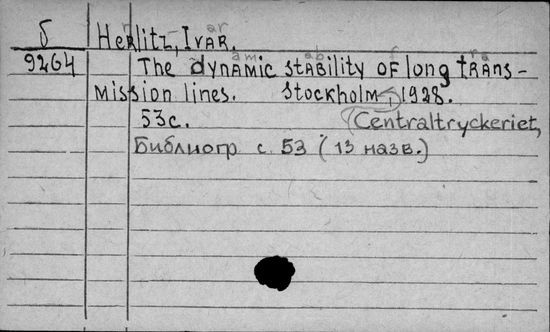 Б Herlitz, Ivar.
9264 The dynamic stability of long trans-
mission lines. Stockholm, 1928.
53с. (Centraltryckeriet,
Библиогр с. 53 (13 назв.)